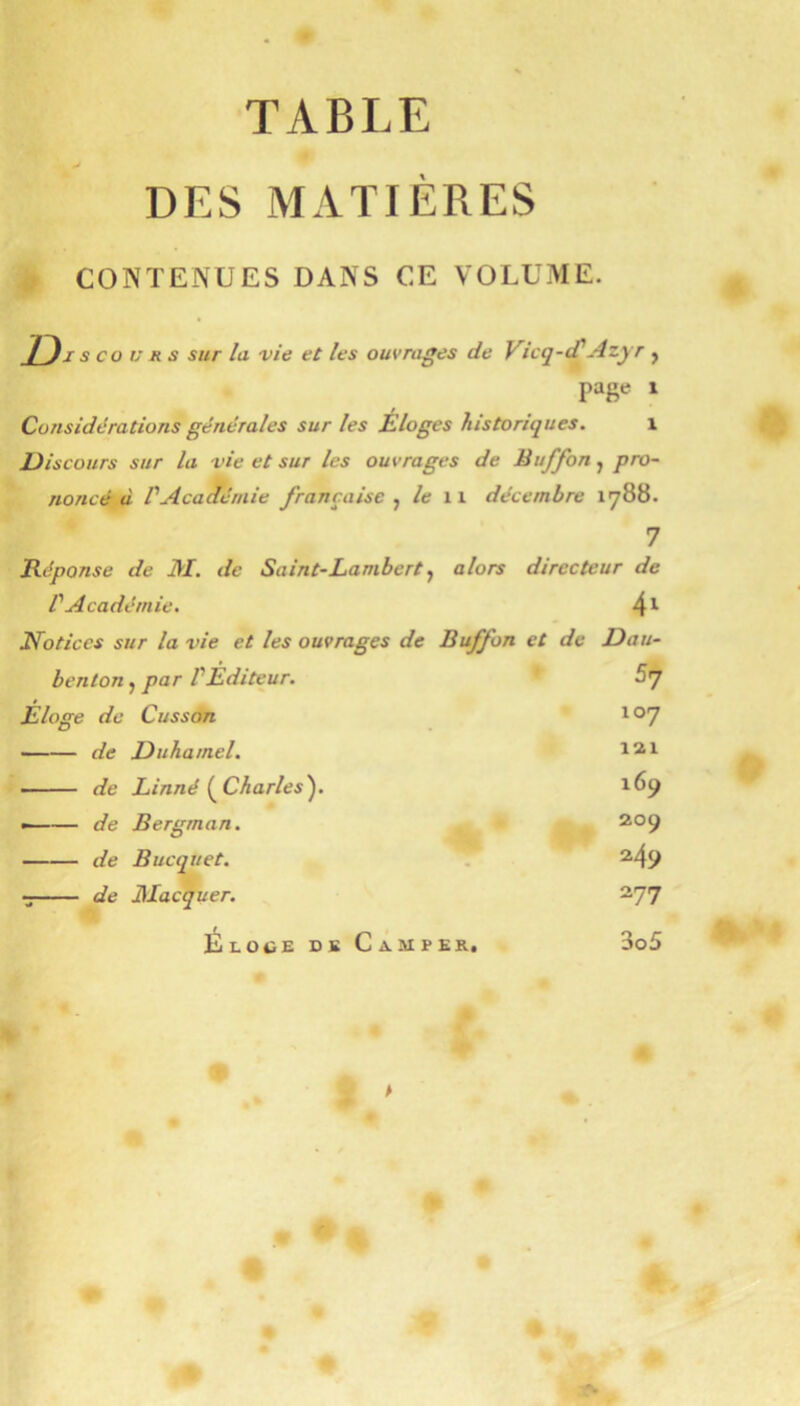 TABLE
DES MATIÈRES
CONTENUES DANS CE VOLUME.
DISCOURS sur la vie et les ouvrages de Vicq-d'Azyr,
page 1
Considérations générales sur les Éloges historiques. 1
Discours sur la vie et sur les ouvrages de Buffon, pro-
noncé à l'Académie française, le 11 décembre 1788.
7
Réponse de M. de Saint-Lambert, alors directeur de
l'Académie. 41
Notices sur la vie et les ouvrages de Buffon et de Dau-
benton, par l'Éditeur. 57
Éloge de Cusson 107
—— de Duhamel. 121
—— de Linné (Charles). 169
—— de Bergman. 209
—— de Bucquet. 249
—— de Macquer. 277
ÉLOGE DE CAMPER. 305